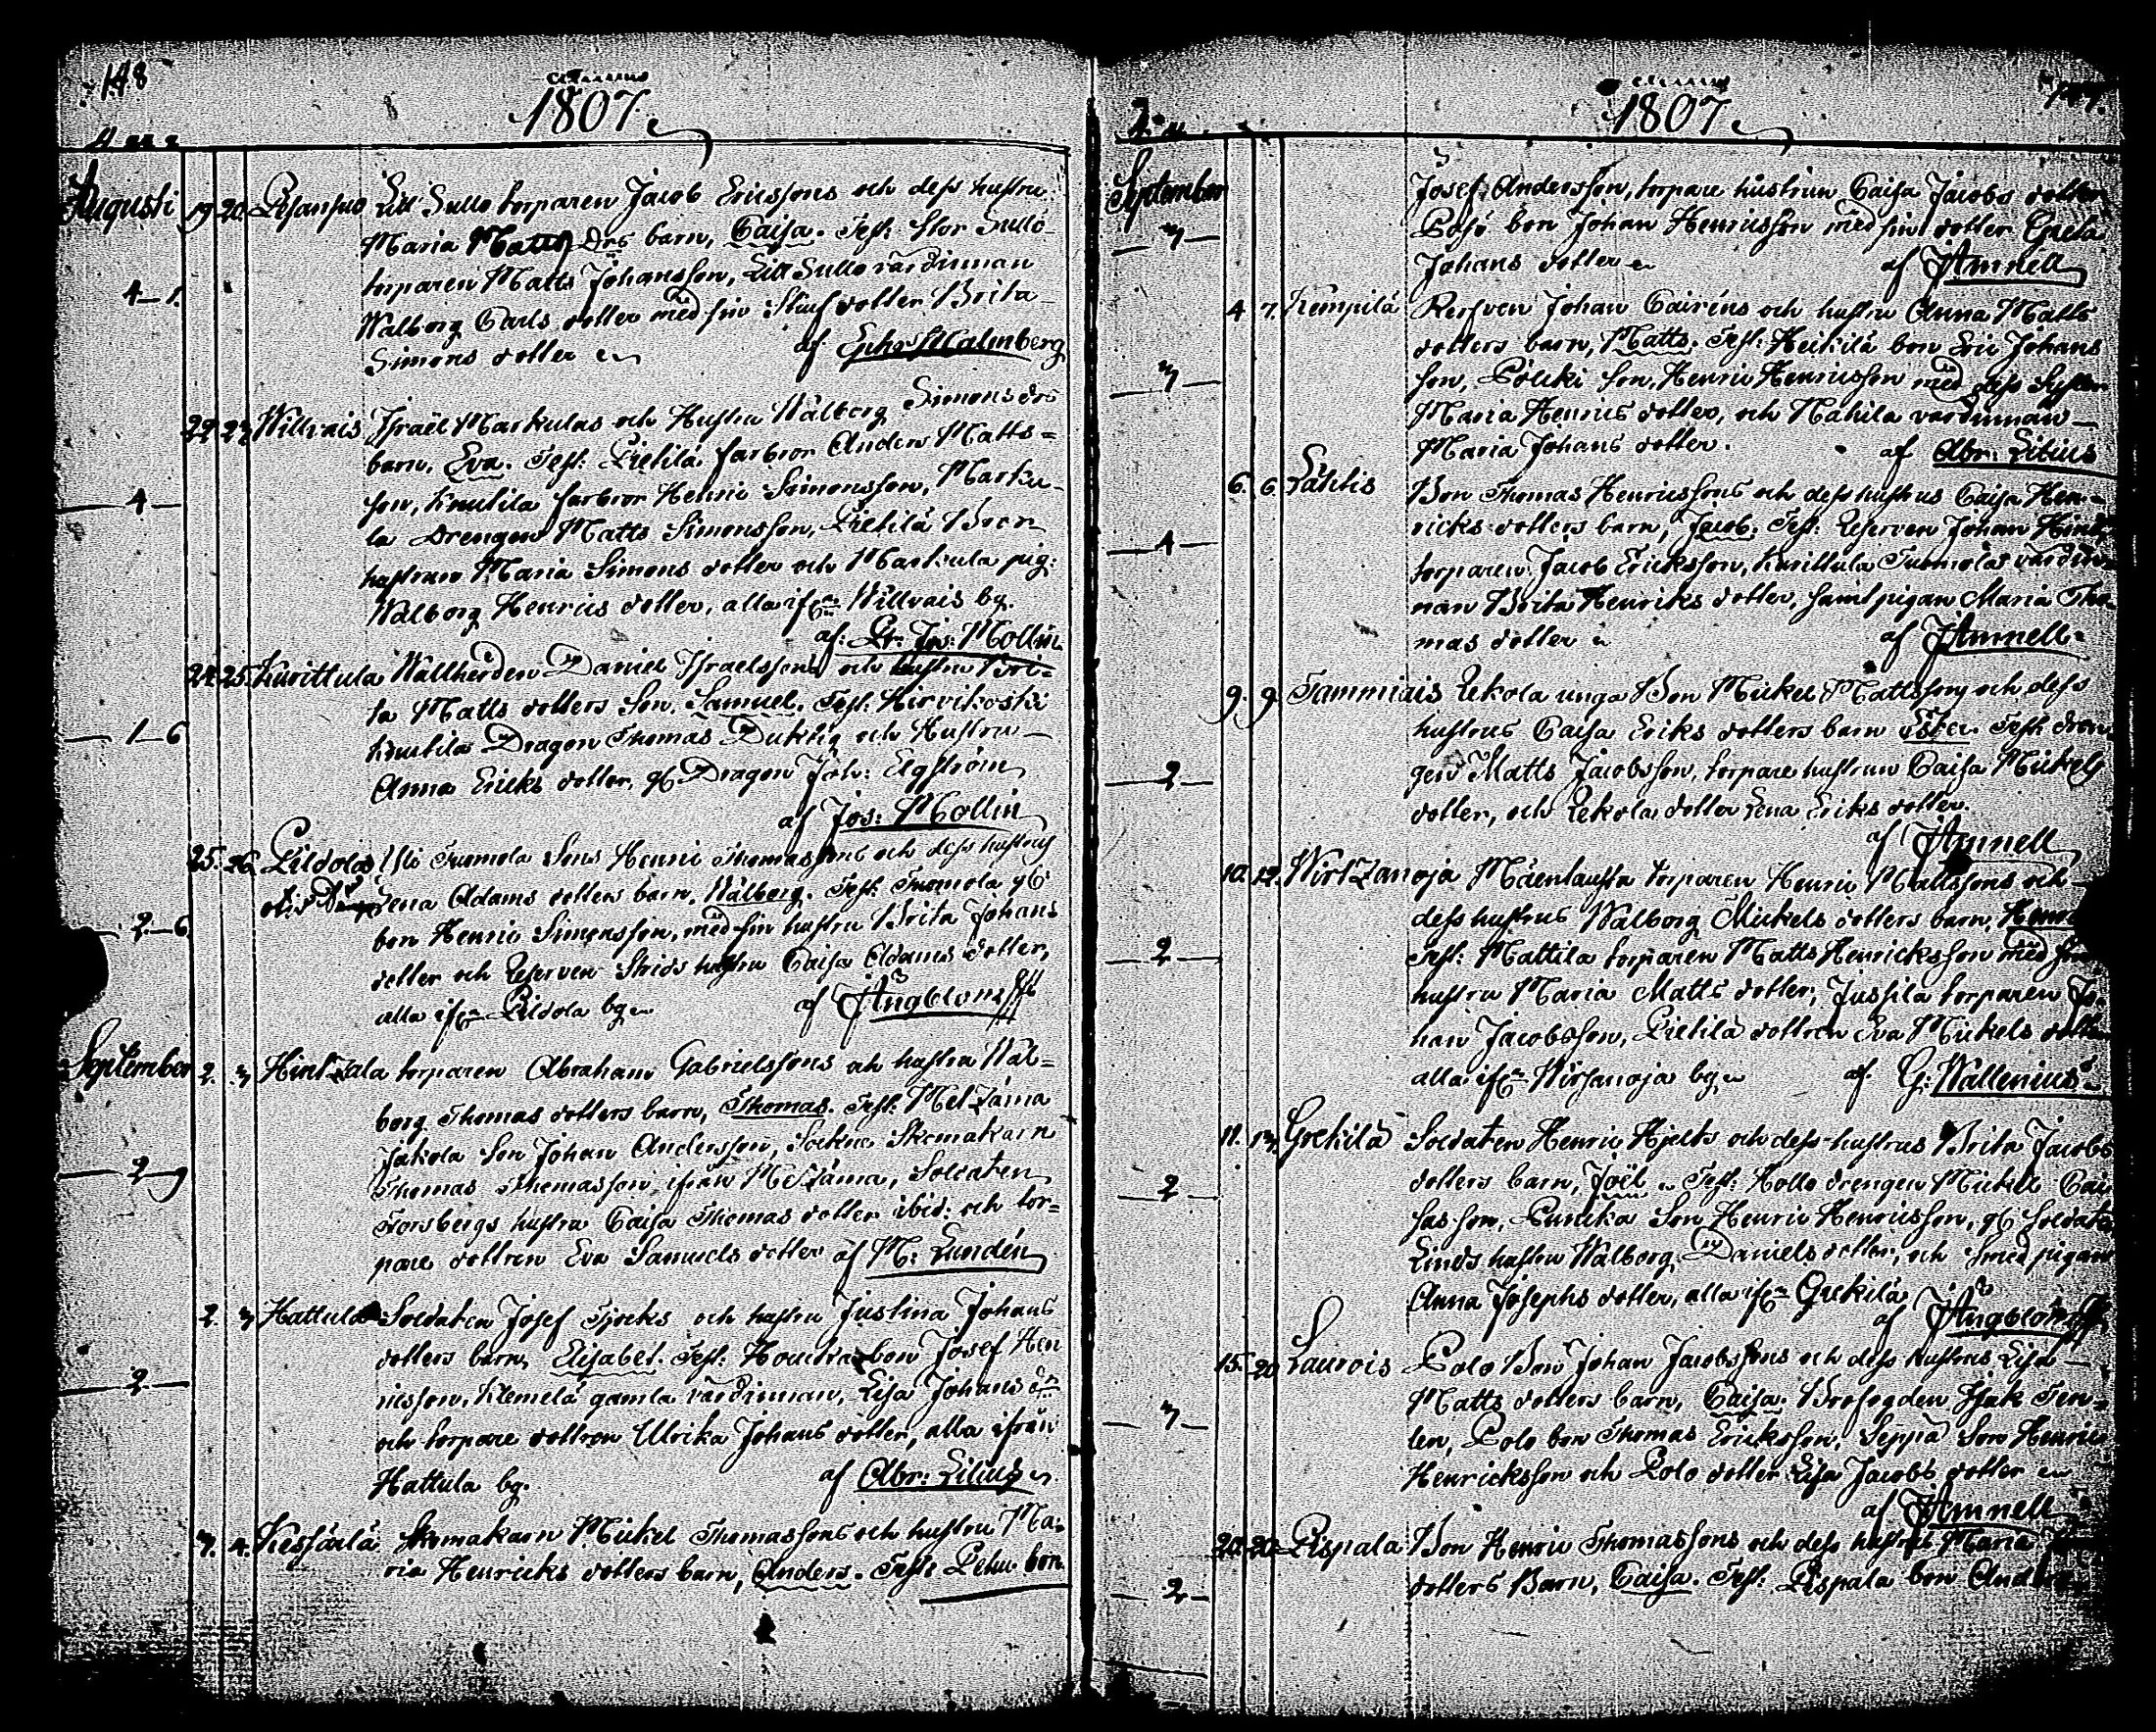 148
Annus
1807.
Augusti 19. 20. Lill Sullo torparen Jacob Ericssons och dess hustru
Maria Matts Drs barn, Caisa. Test: Stor Sullo
torparen Matts Johansson, Lill Sullo värdinnan
4—1.
Walborg Carls dotter med sin Stiuf dotter Brita
Simons dotter
af Eph: Malmberg
22. 23. Willvais Israël Markulas och Hustru Walborg Simonsdrs
barn, Eva. Test: Pietilä farbror Anders Matts-
4
son, Knutila farbror Henric Simonsson, Marku-
la Drengen Matts Simonsson, Pietilä
hustrun Maria Simons dotter och Markula pig:
Walborg Henrics dotter, alla ifrn Willvais by.
af: Jos: Mollin
24. 25. Kurittula Wallherden Daniel Israelssons och hustru Bri-
ta Matts dotters Son, Samuel. Test: Hirvikoski
1—6
Knutila Dragon Thomas Duktig och Hustru
Anna Ericks dotter, gl Dragon Joh: Elgström
af Jos: Mollin
25. 26. Tuomola Sons Henric Thomassons och dess hustrus
Lena Adams dotters barn, Walborg. Test: Tuomola gl:
2—6
bon Henric Simonsson, med sin hustru Brita Johans
dotter och Reserven Strids hustru Caisa Adams dotter,
alla ifrn Pildola by
af J Ångblom
September 2. 3 torparen Abraham Gabrielssons och hustru Wal-
borg Thomas dotters barn, Thomas. Test: Metzäma
Jakola Son Johan Andersson, Sockne Skomakarn
2
Thomas Thomasson ifrån Metzäma, Soldaten
Forsbergs hustru Caisa Thomas dotter ibid: och tor-
pare dottren Eva Samuels dotter af M: Lundén
2. 3 Hattula Soldaten Josef Tjocks och hustru Justina Johans
dotters barn, Elisabet. Test: bon Josef Hen
2
ricsson, Klemelä gamla värdinnan, Lisa Johans dr
och torpare dottren Ulrika Johans dotter, alla ifrån
Hattula by.
af Abr: Lilius
3. 4. Skomakarn Mickel Thomassons och hustru Ma-
ria Henricks dotters barn, Anders. Test: bon
Annus
1807
September
Josef Andersson, torpare hustrun Caisa Jacobs dotter
3
bon Johan Henricsson med sin dotter Greta
Johans dotter
af J Amnell
4 7. Kempilä Reserven Johan Cairéns och hustru Anna Matts
dotters barn, Matts. Test: Heikilä bon Eric Johans
3
son, Pölcki son, Henric Henricsson med dess Syster
Maria Henrics dotter, och värdinnan
Maria Johans dotter.
af Abr: Lilius
6. 6. Lähtis Bon Thomas Henricssons och dess hustrus Caisa Hen-
ricks dotters barn, Jacob. Test: Reserven Johan
4
torparen Jacob Ericksson, Kurittula Tuomolas värdin-
nan Brita Henriks dotter, samt pigan Maria Tho-
mas dotter
af J Amnell
9. 9 Tammiais Uckola unga Bon Mickel Mattssons och dess
hustrus Caisa Eriks dotters barn Test: dren-
2
gen Matts Jacobsson, torpare hustrun Caisa Mickels
dotter, och dotter Lena Eriks dotter.
af J Amnell
10. 12. Wirtzanoja torparen Henric Mattssons och
dess hustrus Walborg Mickels dotters barn,
2
Test: Mattila torparen Matts Henricksson med sin
hustru Maria Matts dotter, Jussila torparen Jo-
han Jacobsson, Pietilä dottren Eva Mickels dotter
alla ifrn Wirsanoja by
af G: Wallenius
11. 13. Grekilä Soldaten Henric Hjelts och dess hustrus Brita Jacobs
2
dotters barn, Joël. Test: Hollo drengen Mickel
son, Punika Son Henric Henricsson, gl Soldat
Linds hustru Walborg Daniels dotter, och smed pigan
Anna Josephs dotter, alla ifrn Grekilä
af J Ångblom
15. 20 Laurois Polo Bon Johan Jacobssons och dess hustrus Lisa
3
Matts dotters barn, Caisa. Brofogden Isak Ten-
len, Polo bon Thomas Ericksson, Seppä Son Henric
Henricksson och Polo dotter Lisa Jacobs dotter
af J Amnell
20. 20. Pispala Bon Henric Thomassons och dess hustrus Maria
2
dotters Barn, Caisa. Test: Pispala bon